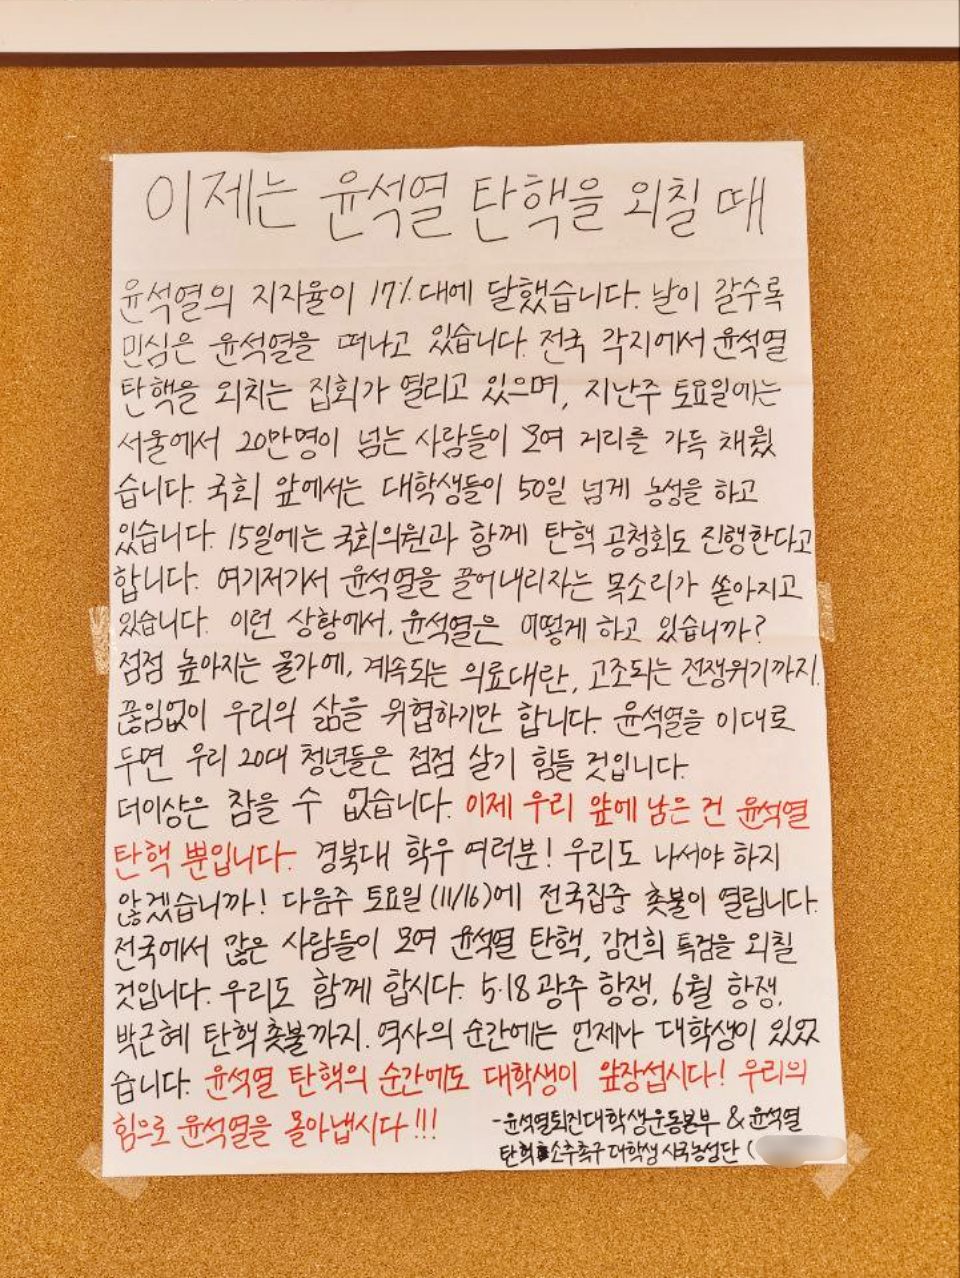 이제는 윤석열 탄핵을 외칠 때
윤석열의 지지율이 17%대에 달했습니다. 날이 갈수록
민심은 윤석열을 떠나고 있습니다. 전국 각지에서 윤석열
탄핵을 외치는 집회가 열리고 있으며, 지난주 토요일에는
서울에서 20만명이 넘는 사람들이 모여 거리를 가득 채웠
습니다. 국회 앞에서는 대학생들이 50일 넘게 농성을 하고
있습니다. 15일에는 국회의원과 함께 탄핵 공청회도 진행한다고
합니다. 여기저기서 윤석열을 끌어내리자는 목소리가 쏟아지고
있습니다. 이런 상황에서, 윤석열은 어떻게 하고 있습니까?
점점 높아지는 물가에, 계속되는 의료대란, 고조되는 전쟁위기까지.
끊임없이 우리의 삶을 위협하기만 합니다. 윤석열을 이대로
두면 우리 20대 청년들은 점점 살기 힘들 것입니다.
더이상은 참을 수 없습니다. 이제 우리 앞에 남은 건 윤석열
탄핵 뿐입니다. 경북대 학우 여러분! 우리도 나서야 하지
않겠습니까! 다음주 토요일(11/16)에 전국집중 촛불이 열립니다.
전국에서 많은 사람들이 모여 윤석열 탄핵, 김건희 특검을 외칠
것입니다. 우리도 함께 합시다. 5·18 광주 항쟁, 6월 항쟁,
박근혜 탄핵 촛불까지. 역사의 순간에는 언제나 대학생이 있었
습니다. 윤석열 탄핵의 순간에도 대학생이 앞장섭시다! 우리의
힘으로 윤석열을 몰아냅시다!!!
-윤석열퇴진대학생운동본부 & 윤석열
탄핵소추촉구 대학생 시국농성단 (